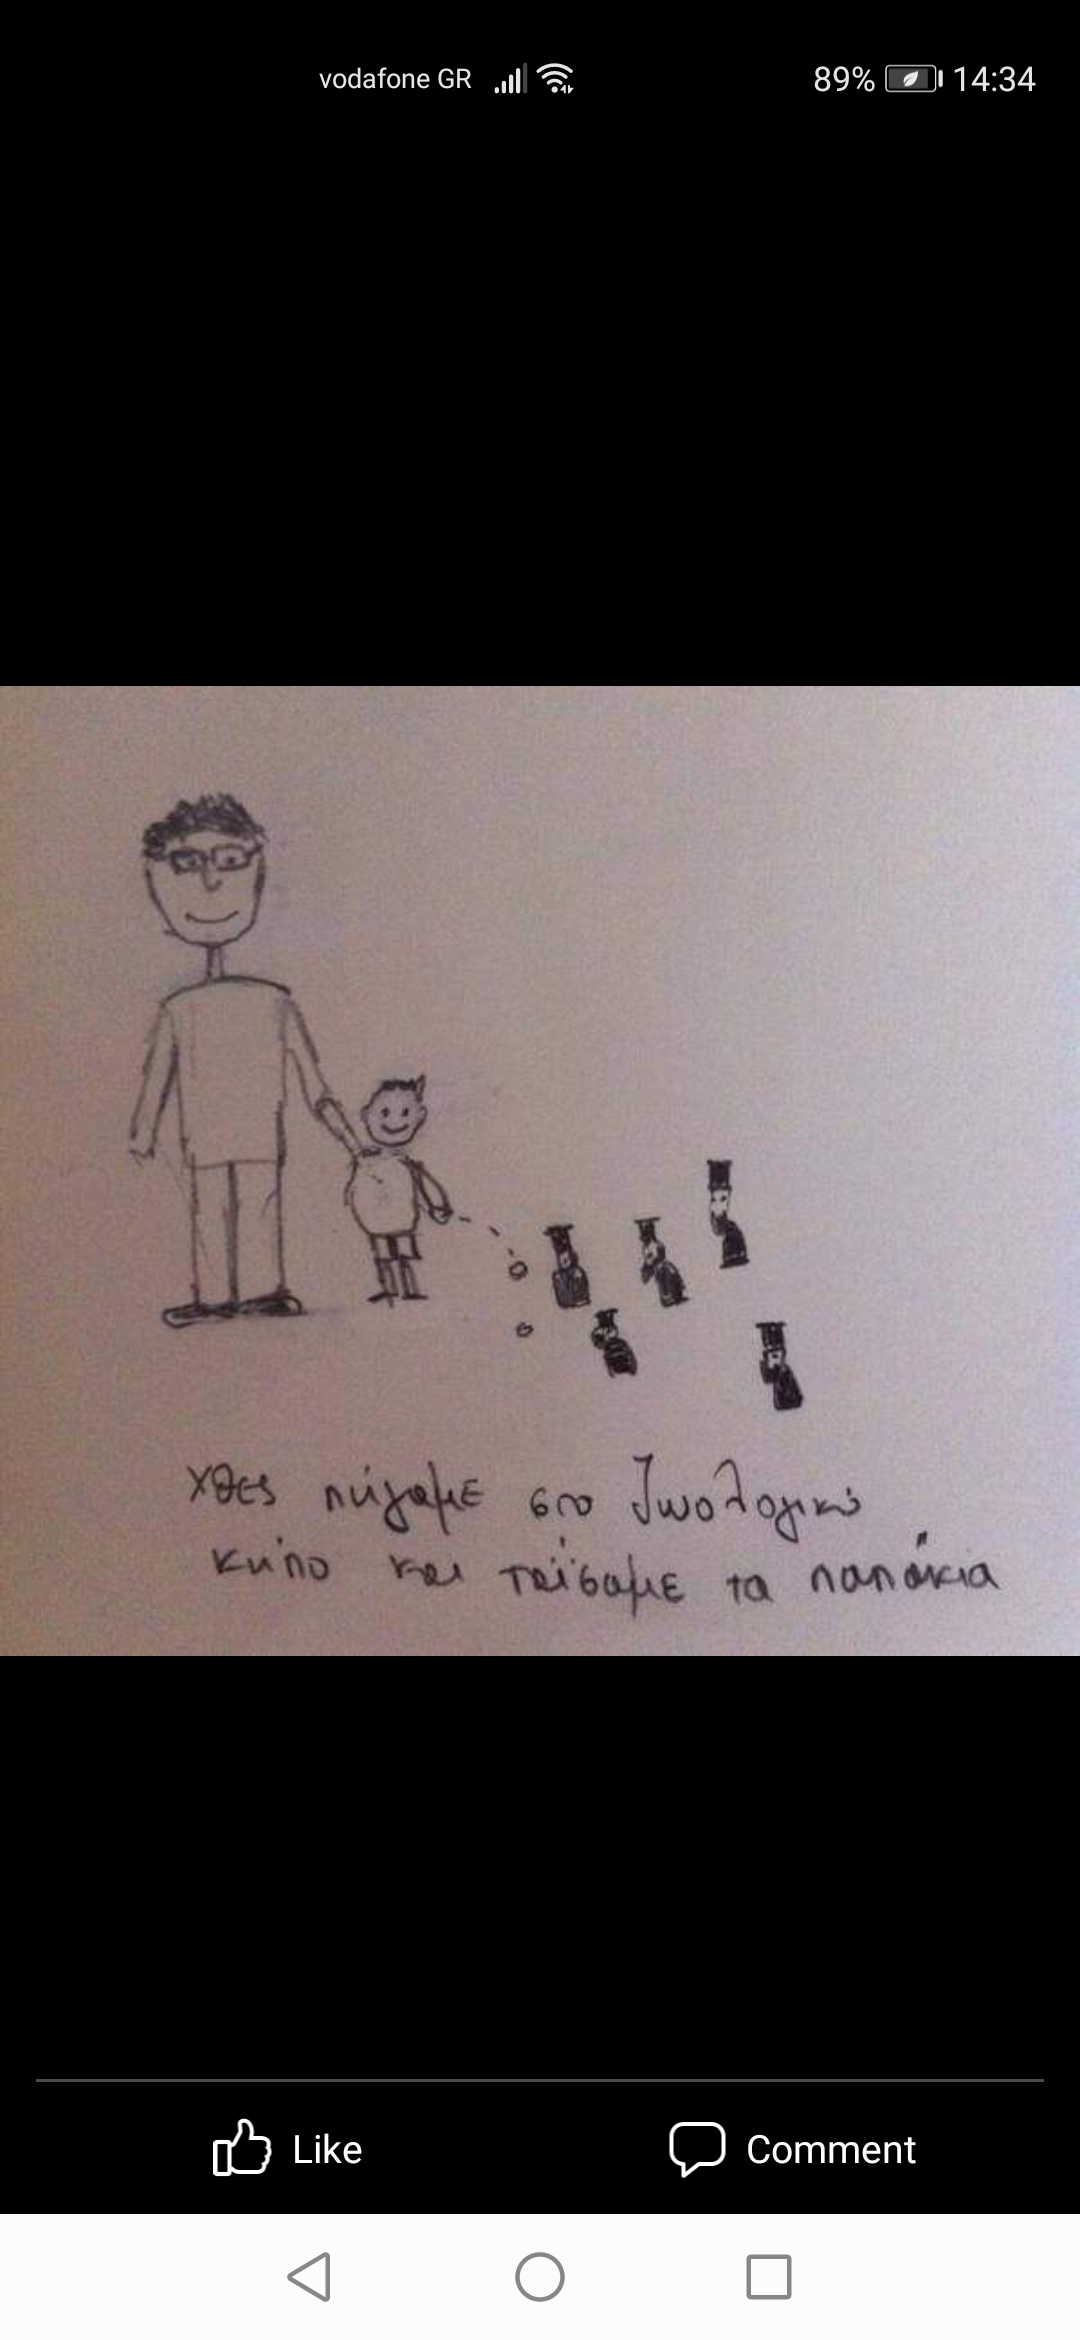 vodafone GR 89% 14:34
χθες πήγαμε στο ζωολογικό
κήπο και ταΐσαμε τα παπάκια
Like Comment